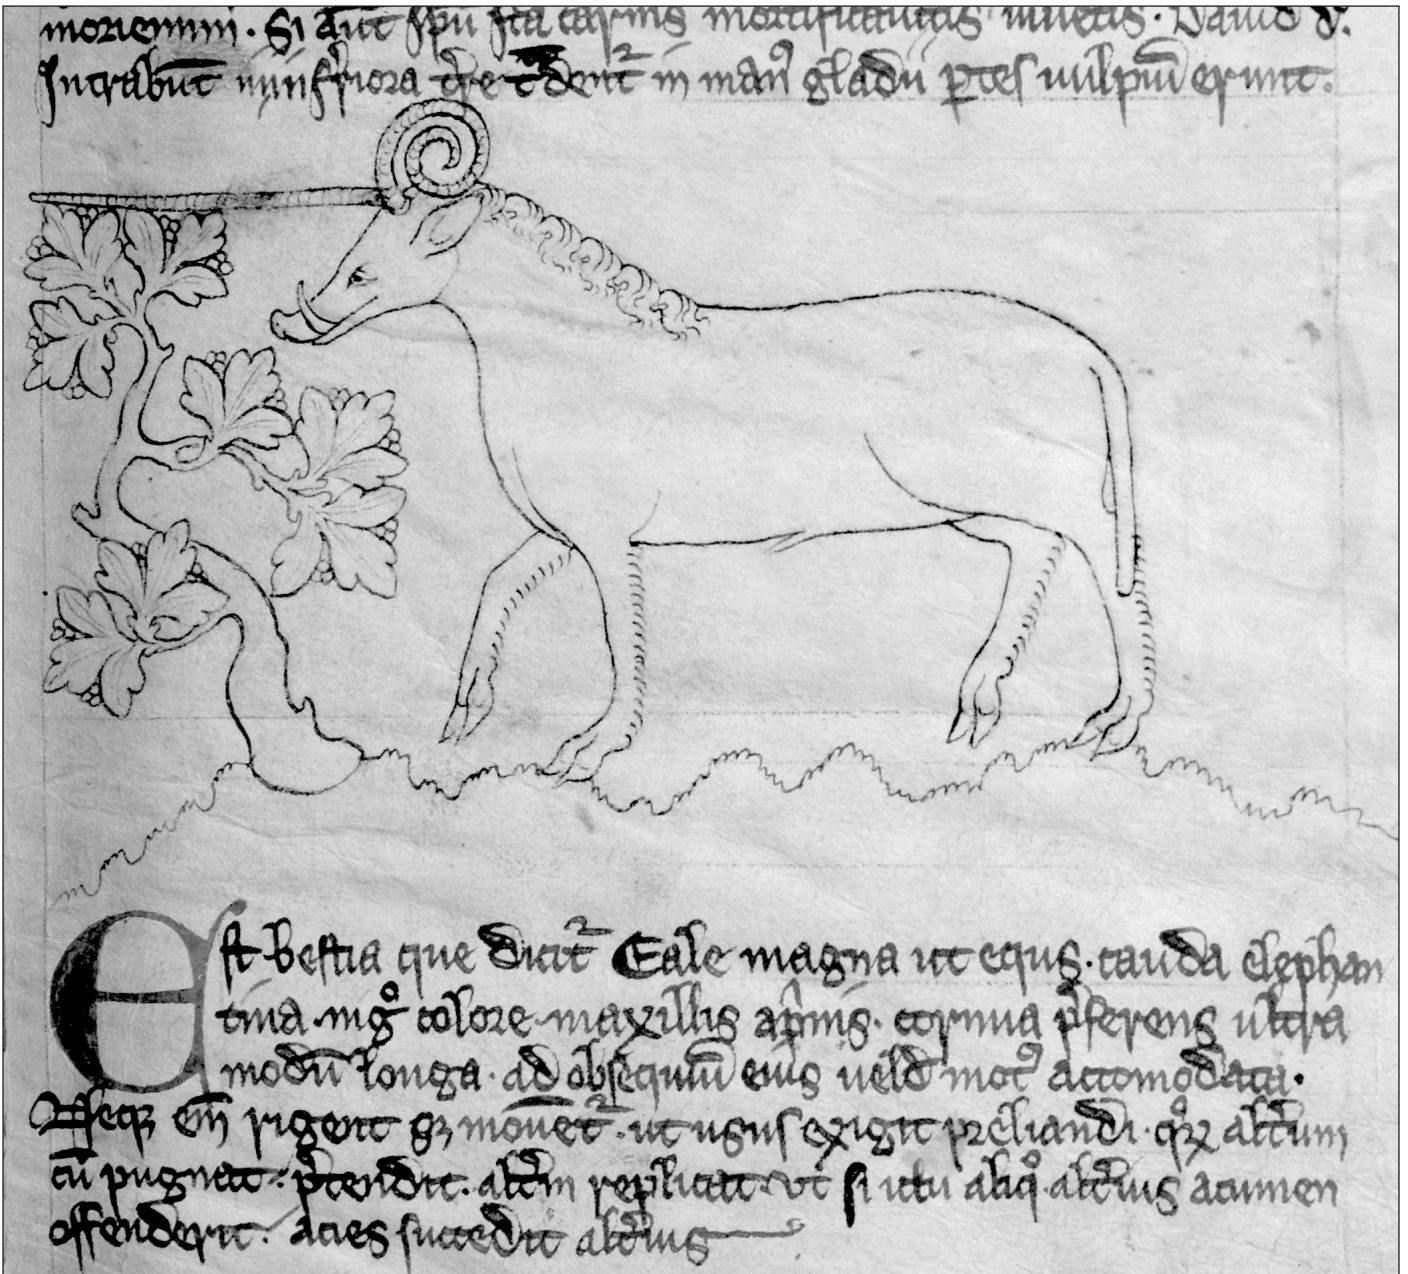 morienmini . Si aūt spū fca carnis mortificaueritis uiuetis . Dauid d̄.
Intrabūt in inferiora tre tᷓdent̉ in man⁹ gladii ꝑtes uulpiū erunt .
Est bestia que dicit̉ Eale magna ut equs . cauda elephan
tina . nigͦ colore maxillis apͥnis . cornua p̄ferens ultra
modū longa . ad obsequiū eius uel mot⁹ accomodata .
Neqꝫ em̄ rigent sꝫ mouēt̉ . ut usus exigit preliandi . qͦꝝ alt̄um
cū pugnat . p̄tendit . alt̄m replicat . ut si ictu aliqͦ alt̄ius acumen
offenderit . acies succedit alt̄ius